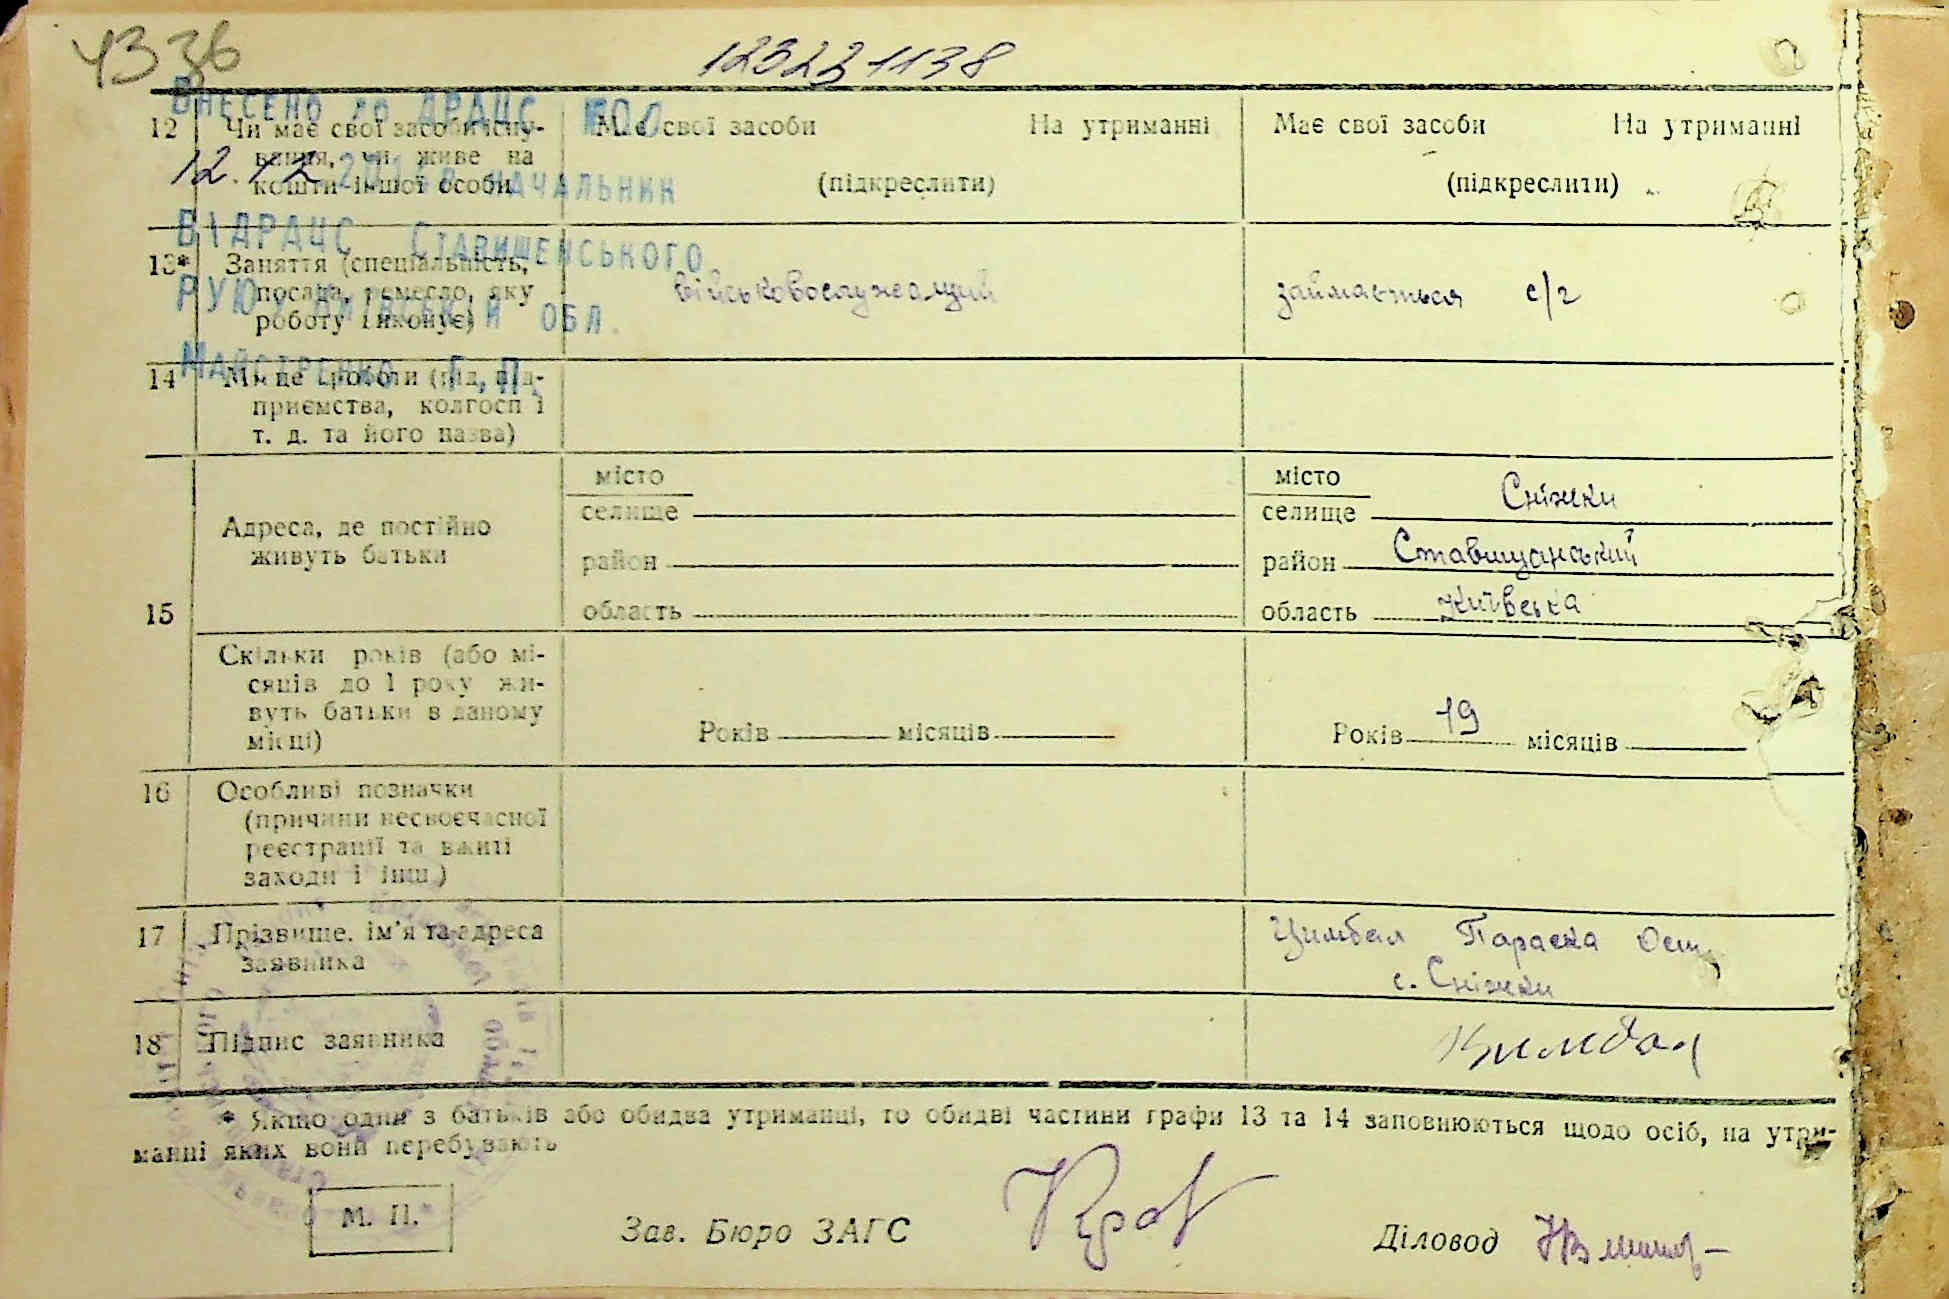 4336
123231138
Внесено до ДРАЦС
12.12.
начальник
ВІДРАЦС Ставищенського
РУЮ Київській обл.
Майстренко Г.П.
12 Чи має свої засоби існу- Має свої засоби На утриманні Має свої засоби На утриманні
вання, чи живе на
кошти іншої особи (підкреслити) (підкреслити)
13* Заняття (спеціальність, військовослужащий займається с/г
посада, ремесло, яку
роботу виконує)
14 Місце роботи (під, під-
приємства, колгосп і
т. д. та його назва)
15 Адреса, де постійно
живуть батьки
місто місто
селище селище Сніжки
район район Ставищанський
область область Київська
Скільки років (або мі-
сяців до 1 року жи-
вуть батьки в даному
місці) Років місяців Років 19 місяців
16 Особливі позначки
(причини несвоєчасної
реєстрації та вжиті
заходи і інш.)
17 Прізвище, ім'я та адреса Цимбал Параска
заявника с. Сніжки
18 Підпис заявника Цимбал
* Якщо один з батьків або обидва утриманці, то обидві частини графи 13 та 14 заповнюються щодо осіб, на утри-
манні яких вони перебувають
М. П. Зав. Бюро ЗАГС Діловод